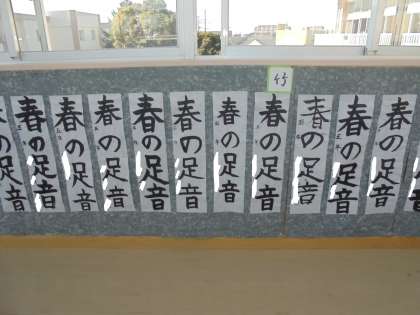 竹
春の足音
春の足音
春の足音
春の足音
春の足音
春の足音
春の足音
春の足音
春の足音
春の足音
春の足音
春の足音
の足音